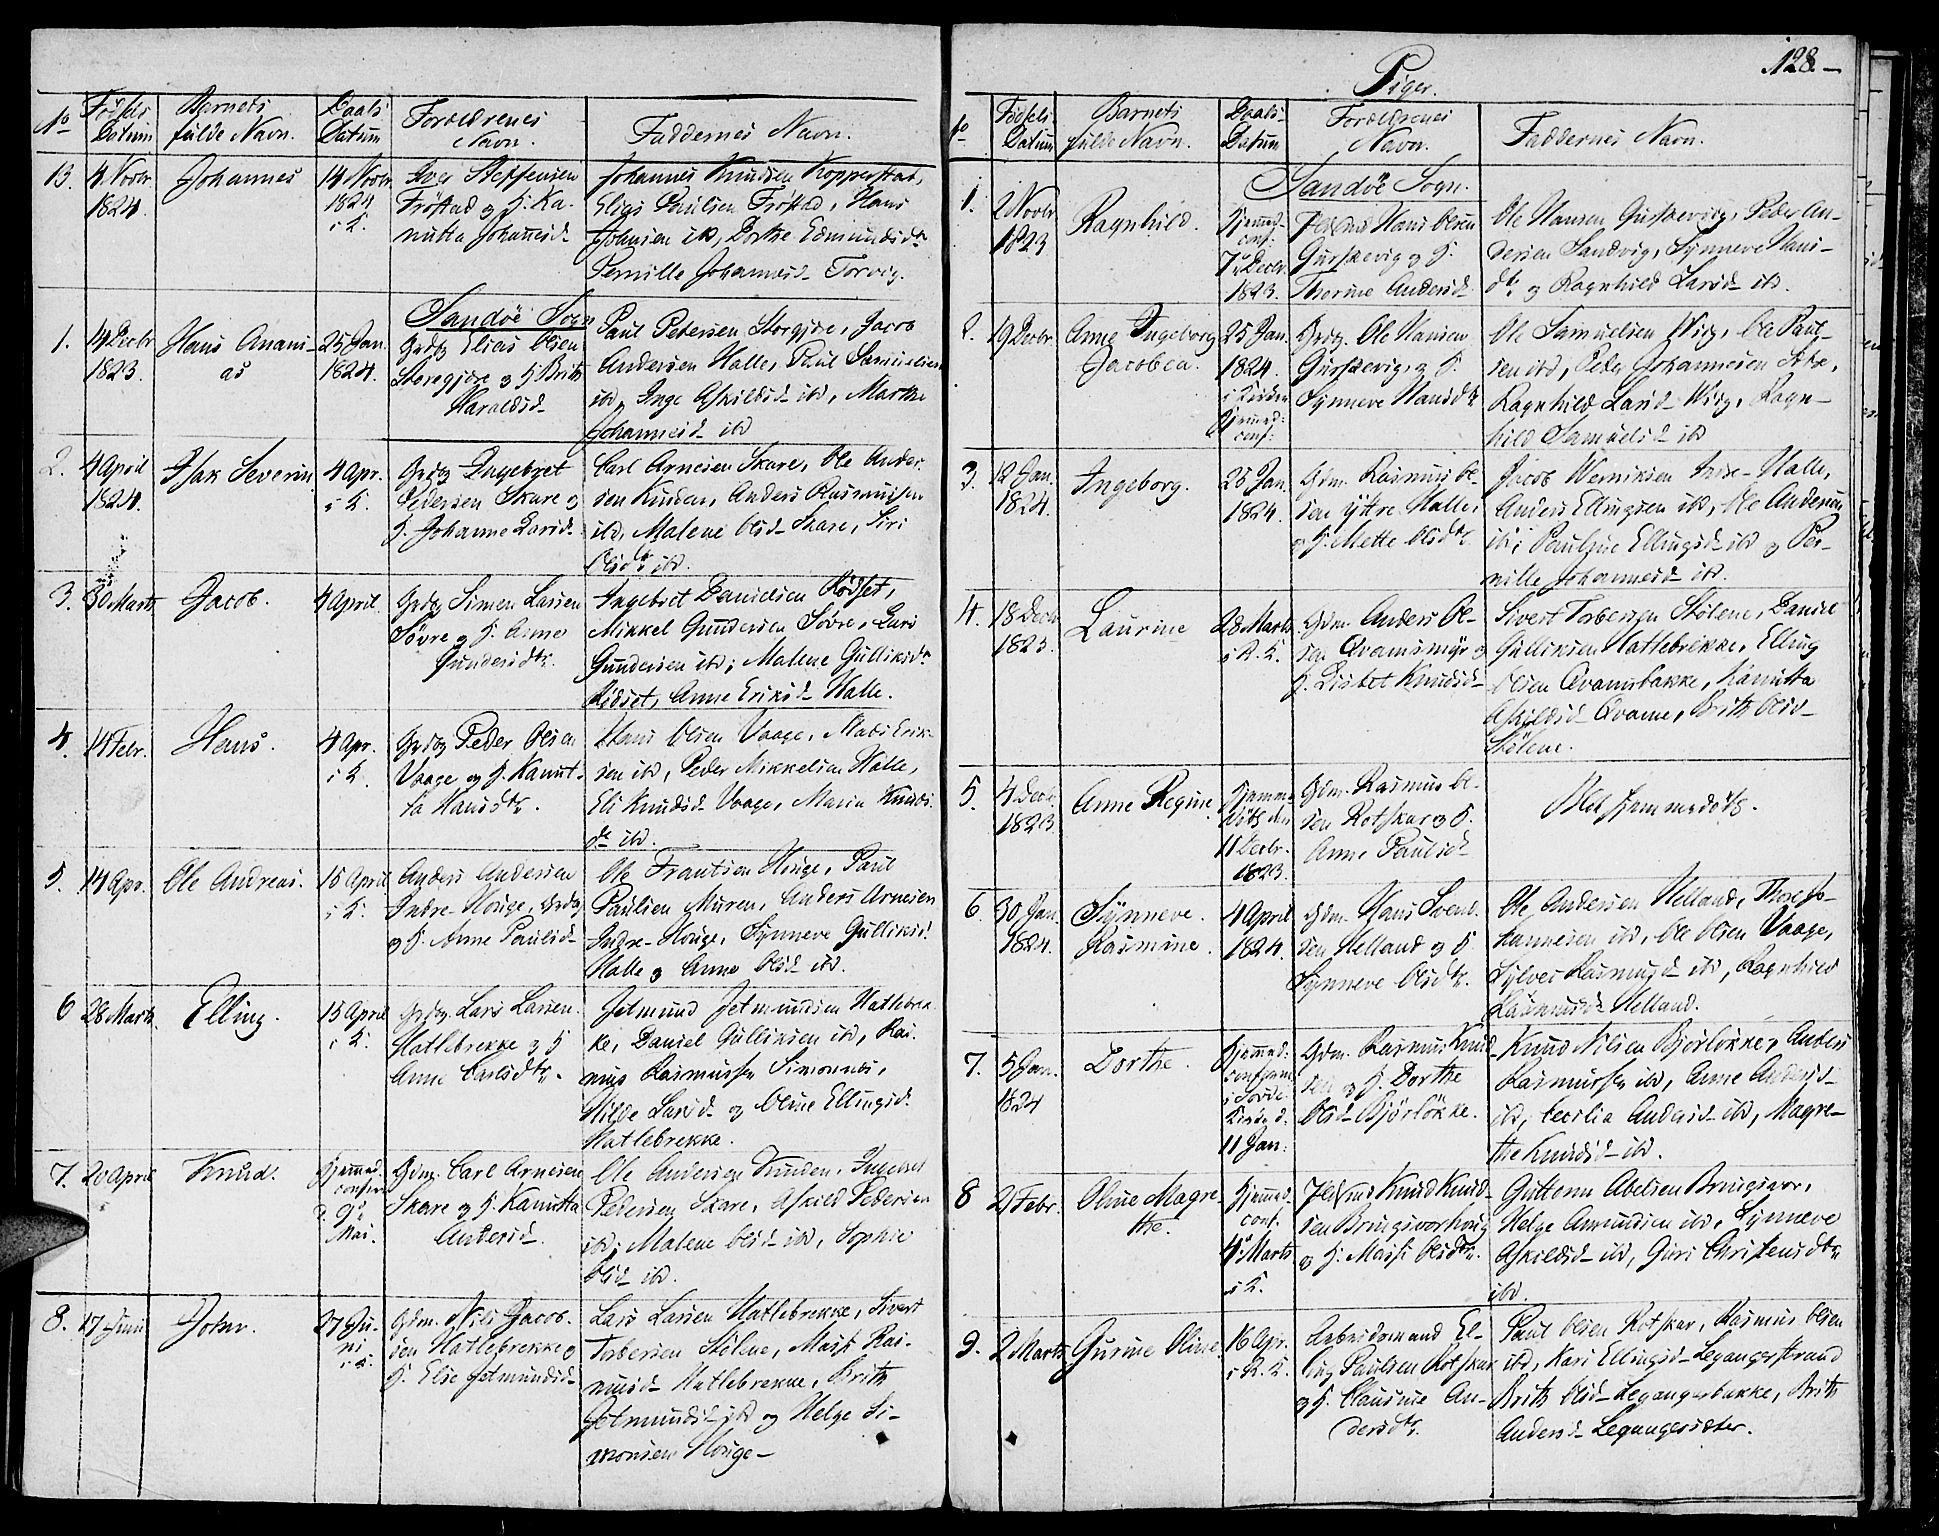 128.
No
Fødsels Datum
Barnets fulde Navn.
Daabs Datum
Forældrenes Navn.
Faddernes Navn.
13.
4 Novbr
1824.
Johannes
14 Novbr
1824
i K.
Iver Steffensen
Frøstad og H. Ka-
nutta Johannesd.
Johannes Knudsen Kopperstad,
Elias Paulsen Frøstad, Hans
Johansen ibd, Dorthe Edmundsdr
Pernille Johannesd. Torvig.
Sandøe Sogn
1.
14 Decbr
1823.
Hans Anani-
as
25 Jan.
1824.
Grdbg Elias Olsen
Storegjøre og H. Brithe
Haraldsd.
Paul Petersen Storgjøre, Jacob
Andersen Halle, Paul Samuelsen
ibd, Inge Askildsd. ibd, Marthe
Johannesd. ibd
2.
4 April
1824.
Isak Severin
4 Apr.
i K.
Grdbg Ingebret
Pedersen Skare og
H. Johanne Larsd.
Carl Arnesen Skare, Ole Ander-
sen Kunden, Anders Rasmussen
ibd, Malene Olsd. Skare, Siri
Olsdtr ibd.
3.
30 Marts
Jacob.
4 April.
Grdbg Simen Larsen
Søvre og H. Anne
Gundersdtr.
Ingebret Danielsen Rødset,
Mikkel Gundersen Søvre, Lars
Gundersen ibd, Malene Gulliksdr
Rødset, Anne Eriksd. Halle.
4.
14 Febr.
Hans.
4 Apr.
i K.
Grdbg Peder Olsen
Vaage og H. Kanut-
ta Hansdtr.
Hans Olsen Vaage, Mads Erik-
sen ibd, Peder Mikkelsen Halle,
Eli Knudsd. Vaage, Maren Knuds-
dr ibd.
5.
14 Apr.
Ole Andreas.
15 April
i K.
Anders Andersen
Indre-Houge, Grdbg
og H. Anne Paulsd.
Ole Frantsen Houge, Paul
Paulsen Muren, Anders Arnesen
Indre-Houge, Synneve Gulliksd.
Halle og Anne Olsd. ibd.
6
28 Marts.
Elling.
15 April
i K.
Grdbg. Lars Larsen
Hatlebrekke og H
Anne Carlsdtr.
Jetmund Jetmundsen Hatlebrek-
ke, Daniel Gulliksen ibd, Ras-
mus Rasmussen Simonnes,
Hilde Larsd. og Oline Ellingsd.
Hatlebrekke.
7.
20 April
Knud.
Hjemmed.
confirm
d. 9de
Mai.
Gdm. Carl Arnesen
Skare og H. Kanutta
Andersd.
Ole Andersen Kunden, Ingebret
Pedersen Skare, Askild Pedersen
ibd, Malene Olsd. ibd, Sophie
Olsd. ibd.
8.
17 Juni
John.
27 Ju-
ni
i K.
Gdm. Nils Jacob-
sen Hatlebrekke og
H. Else Jetmundsd.
Lars Larsen Hatlebrekke, Sivert
Torbersen Stølene, Masi Ras-
musd. Hatlebrekke, Brithe
Jetmundsd. ibd og Helge Si-
monsen Houge-
Piger.
No
Fødsels Datum
Barnets fulde Navn.
Daabs-Datum
Forældrenes Navn.
Faddernes Navn.
Sandøe Sogn.
1.
2 Novbr
1823
Ragnhild.
Hjemmed.
conf:
7de Decbr.
1823.
Hans Olsen
Gurskevig og H.
Therine Andersd.
Ole Hansen Gurskevig, Peder An-
dersen Sandvig, Synneve Hans-
dtr. og Ragnhild Larsd. ibd.
2.
19 Decbr.
Anne Ingeborg
Jacobea.
25 Jan.
1824.
i Kirken
Hjemmed.
conf:
Grdbg. Ole Hansen
Gurskevig, og H.
Synneve Hansdtr.
Ole Samuelsen Wiig, Ole Paul-
sen ibd, Peder Johannesen
Ragnhild Larsd. Wiig, Ragn-
hild Samuelsd. ibd
3.
12 Jan.
1824.
Ingeborg.
25 Jan.
1824.
Gdm. Rasmus Ol-
sen Yttre Halle,
og H. Mette Olsdtr.
Jacob Werniksen Indre-Halle,
Anders Ellingsen ibd, Ole Andersen
ibd, Pauline Ellingsd. ibd og Per-
nille Johannesd. ibd.
4.
18 Decbr
1823.
Laurine
28 Marts
i R. K.
Gdm. Anders Ol-
sen Qvamsmyr og
H. Lisbet Knudsd.
Sivert Torbersen Stølene, Daniel
Gulliksen Hatlebrekke, Elling
Olsen Qvamsbakke, Kanutta
Askildsd. Qvame, Brithe Olsd.
Stølene.
5.
4 Decbr
1823
Anne Regine.
Hjemme-
døbt den
11 Decbr.
1823.
Gdm. Rasmus Ol-
sen Rotskar og H.
Anne Paulsd.
Blot hjemmedøbt.
6.
30 Jan.
1824.
Synneve
Rasmine.
4 April
1824.
Gdm. Hans Svend-
sen Helland og H.
Synneve Olsdtr.
Ole Andersen Helland, Thore Jo-
hannesen ibd, Ole Olsen Vaage,
Sylvei Rasmusd. ibd, Ragnhild
Rasmusd. Helland.
7.
5 Jan.
1824
Dorthe.
Hjemmed.
confirm
i Søvde
Kirke d.
11 Jan.
Gdm. Rasmus Knud-
sen og H. Dorthe
Olsd. Bjørløkke.
Knud Nilsen Bjørløkke, Anders
Rasmussen ibd, Anne Andersd.
ibd, Cecilia Andersd. ibd, Magre-
the Knudsd. ibd.
8
21 Febr.
Oline Magre-
the.
Hjemmed.
conf.
4de Marts
i K.
Knud Knud-
sen Bringsvorhoug
og H. Masi Olsdtr.
Guttorm Abelsen Bringsvor,
Helge Amundsen ibd, Synneve
Askildsd. ibd, Guri Christensdtr
ibd.
9.
2 Marts
Gurine Oline.
16 Apr.
i R. K.
Arbeidsmand El-
ling Paulsen Rotskar
og H. Clausine An-
dersdtr.
Paul Olsen Rotskar, Rasmus Olsen
ibd, Kari Ellingsd. Legangerstrand
Brithe Olsd. Legangerbakke, Brithe
Andersd. Legangersæter.